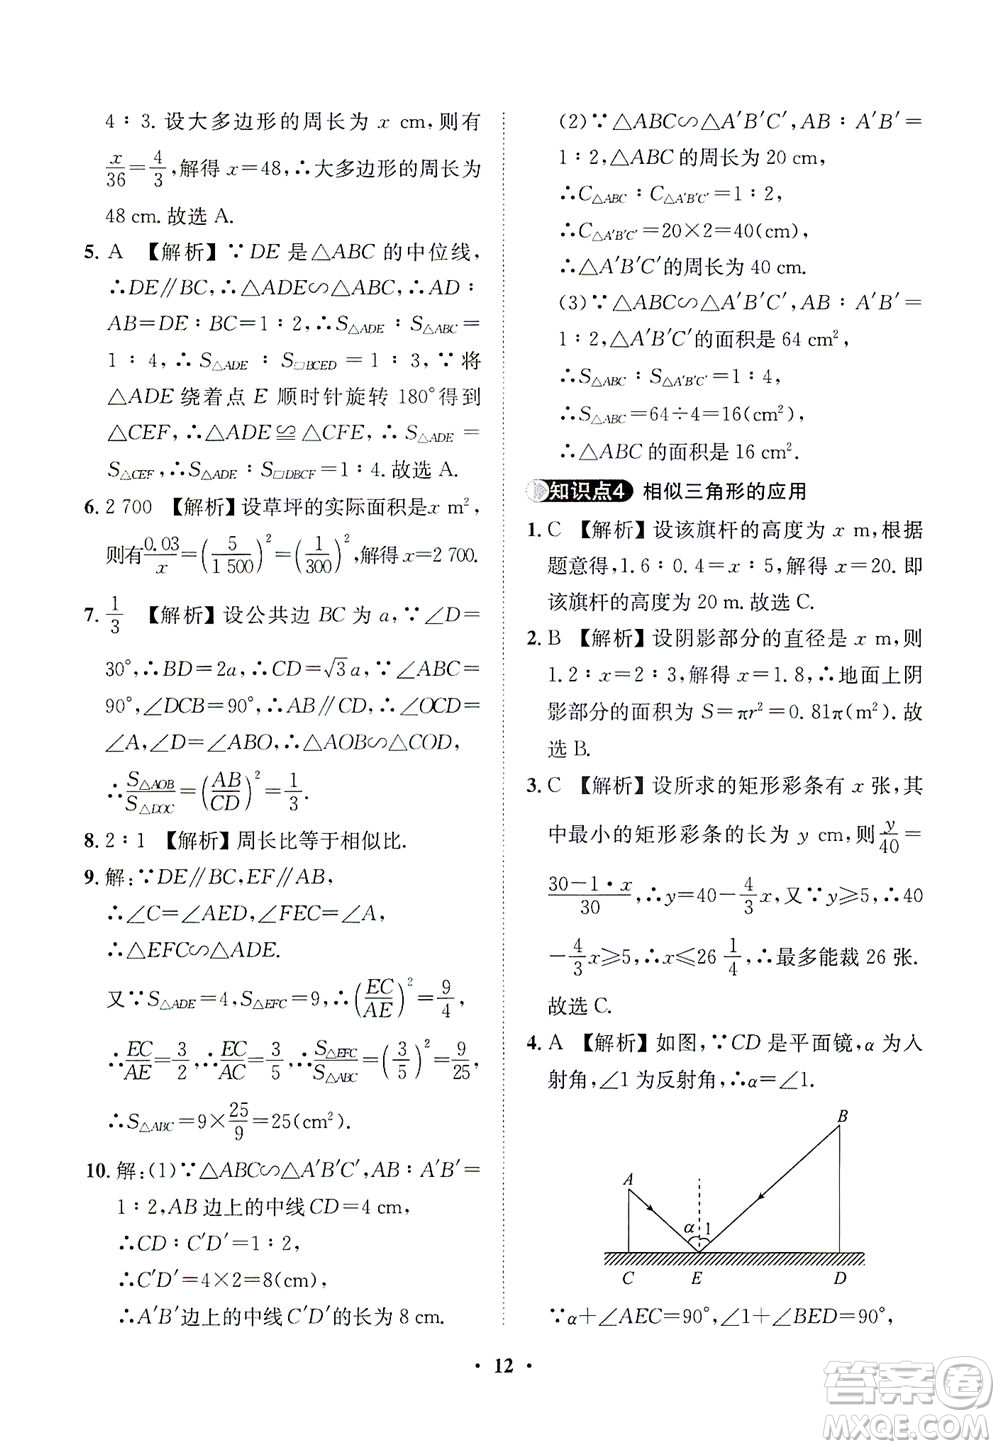 4∶3.设大多边形的周长为 x cm,则有
x/36=4/3,解得 x=48,∴大多边形的周长为
48 cm.故选 A.
5. A 【解析】∵DE 是△ABC 的中位线,
∴DE∥BC,∴△ADE∽△ABC,AD∶
AB=DE∶BC=1∶2,∴S△ADE∶S△ABC=
1∶4,∴S△ADE∶S□BCED=1∶3,∵将
△ADE 绕着点 E 顺时针旋转 180°得到
△CEF,∴△ADE≌△CFE,∴S△ADE=
S△CEF,∴S△ADE∶S□DBCF=1∶4.故选 A.
6. 2 700 【解析】设草坪的实际面积是x m²,
则有0.03/x=(5/1 500)²=(1/300)²,解得 x=2 700.
7. 1/3 【解析】设公共边 BC 为 a,∵∠D=
30°,∴BD=2a,∴CD=√3 a,∵∠ABC=
90°,∠DCB=90°,∴AB∥CD,∴∠OCD=
∠A,∠D=∠ABO,∴△AOB∽△COD,
∴S△AOB/S△DOC=(AB/CD)²=1/3.
8. 2∶1 【解析】周长比等于相似比.
9. 解:∵DE∥BC,EF∥AB,
∴∠C=∠AED,∠FEC=∠A,
∴△EFC∽△ADE.
又∵S△ADE=4,S△EFC=9,∴(EC/AE)²=9/4,
∴EC/AE=3/2,∴EC/AC=3/5,∴S△EFC/S△ABC=(3/5)²=9/25,
∴S△ABC=9×25/9=25(cm²).
10. 解:(1)∵△ABC∽△A′B′C′,AB∶A′B′=
1∶2,AB 边上的中线 CD=4 cm,
∴CD∶C′D′=1∶2,
∴C′D′=4×2=8(cm),
∴A′B′边上的中线 C′D′的长为 8 cm.
(2)∵△ABC∽△A′B′C′,AB∶A′B′=
1∶2,△ABC 的周长为 20 cm,
∴C△ABC∶C△A′B′C′=1∶2,
∴C△A′B′C′=20×2=40(cm),
∴△A′B′C′的周长为 40 cm.
(3)∵△ABC∽△A′B′C′,AB∶A′B′=
1∶2,△A′B′C′的面积是 64 cm²,
∴S△ABC∶S△A′B′C′=1∶4,
∴S△ABC=64÷4=16(cm²),
∴△ABC 的面积是 16 cm².
知识点4 相似三角形的应用
1. C 【解析】设该旗杆的高度为 x m,根据
题意得,1.6∶0.4=x∶5,解得 x=20.即
该旗杆的高度为 20 m.故选C.
2. B 【解析】设阴影部分的直径是 x m,则
1.2∶x=2∶3,解得 x=1.8,∴地面上阴
影部分的面积为 S=πr²=0.81π(m²).故
选 B.
3. C 【解析】设所求的矩形彩条有 x 张,其
中最小的矩形彩条的长为 y cm,则y/40=
30-1·x/30,∴y=40-4/3x,又∵y≥5,∴40
-4/3x≥5,∴x≤26 1/4,∴最多能裁 26 张.
故选 C.
4. A 【解析】如图,∵CD 是平面镜,α 为入
射角,∠1 为反射角,∴α=∠1.
B
A
α 1
C E D
∵α+∠AEC=90°,∠1+∠BED=90°,
• 12 •
答案圈
MXQE.COM